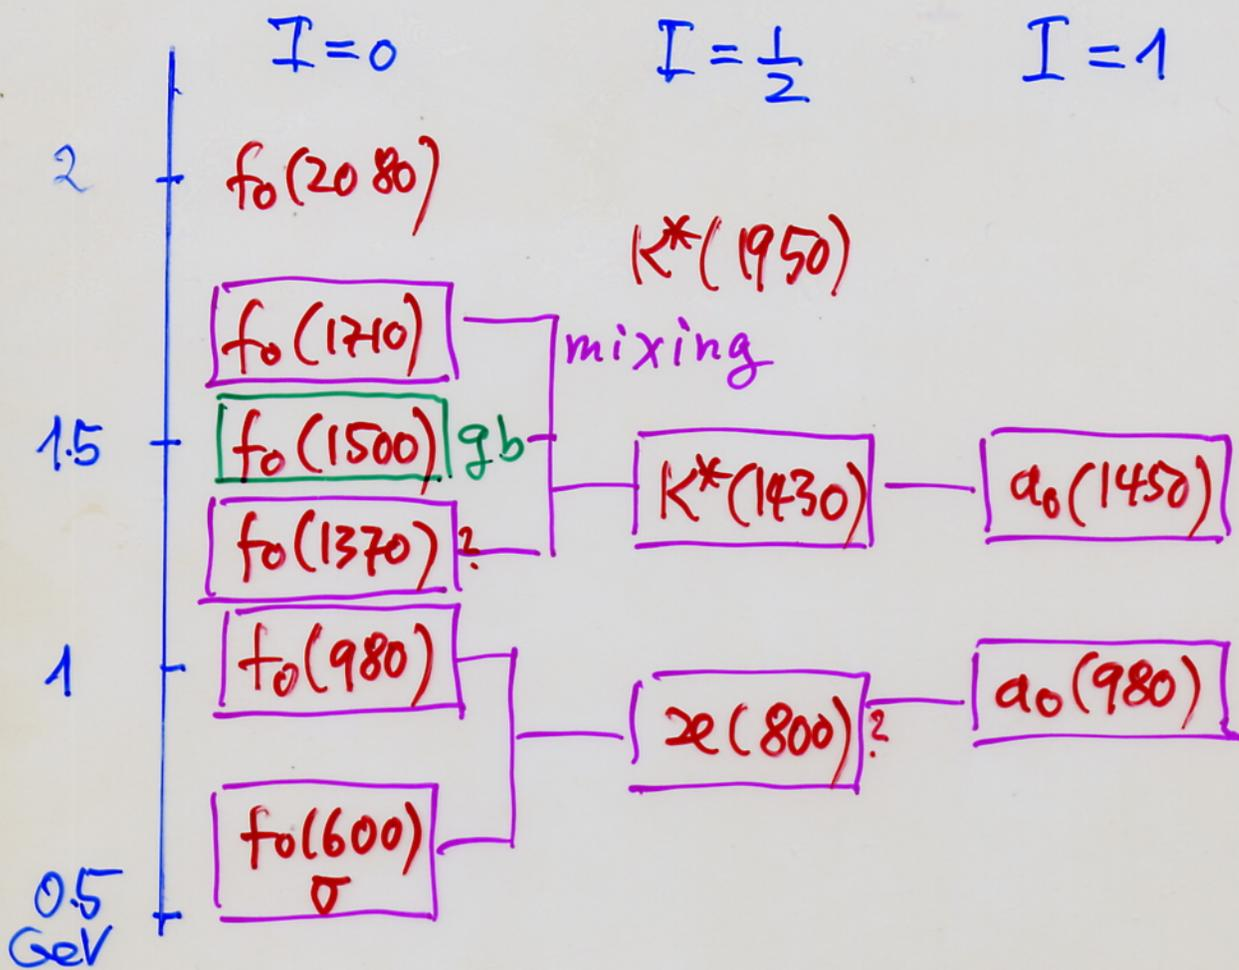 I=0 I=1/2 I=1
2 f0(2080)
K*(1950)
f0(1710) mixing
1.5 f0(1500) gb K*(1430) a0(1450)
f0(1370) ?
1 f0(980) a0(980)
æ(800) ?
f0(600)
σ
0.5
GeV